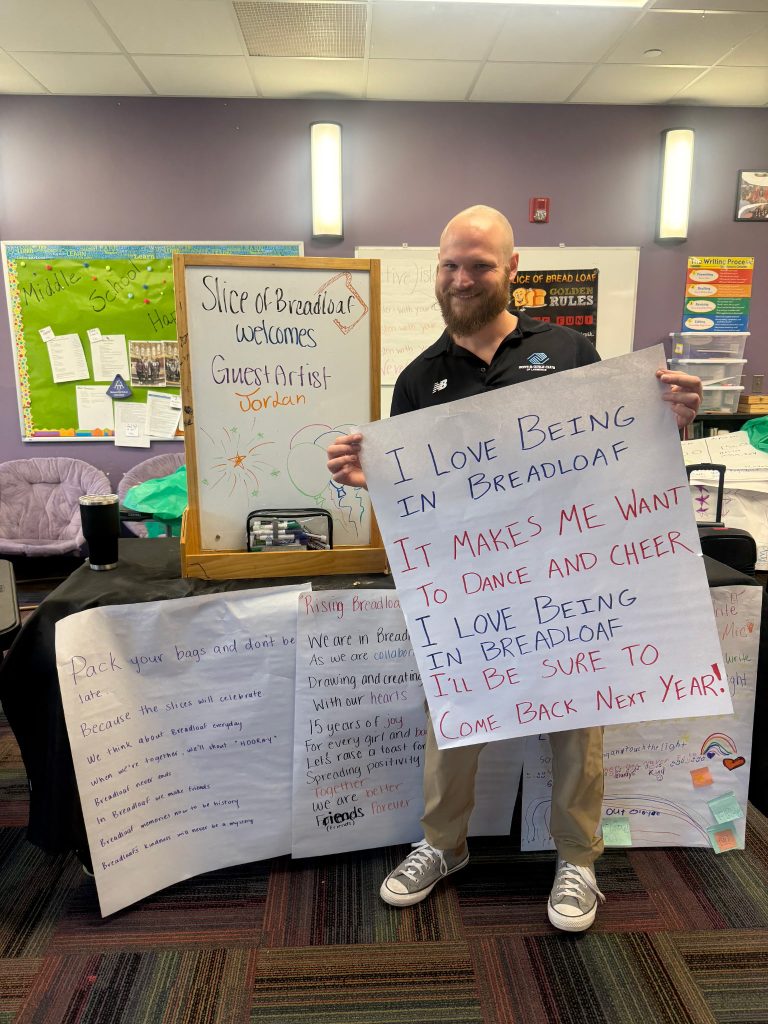 Middle School
Learn
Slice of Breadloaf
welcomes
Guest Artist
Jordan
SLICE OF BREAD LOAF
GOLDEN
RULES
The Writing Process
I LOVE BEING
IN BREADLOAF
IT MAKES ME WANT
TO DANCE AND CHEER
I LOVE BEING
IN BREADLOAF
I'LL BE SURE TO
COME BACK NEXT YEAR!
Pack your bags and don't be
late..
Because the slices will celebrate
We think about Breadloaf everyday
When we're together, we'll shout "HOORAY"
Breadloaf never ends
In Breadloaf we make friends
Breadloaf memories now to be history
Breadloaf's kindness will never be a mystery
"Rising Breadloaf
We are in Bread
As we are collabor
Drawing and creating
With our hearts
15 years of joy
For every girl and bo
Let's raise a toast for
Spreading positivity
Together
We are better
Friends Forever
(Friends)